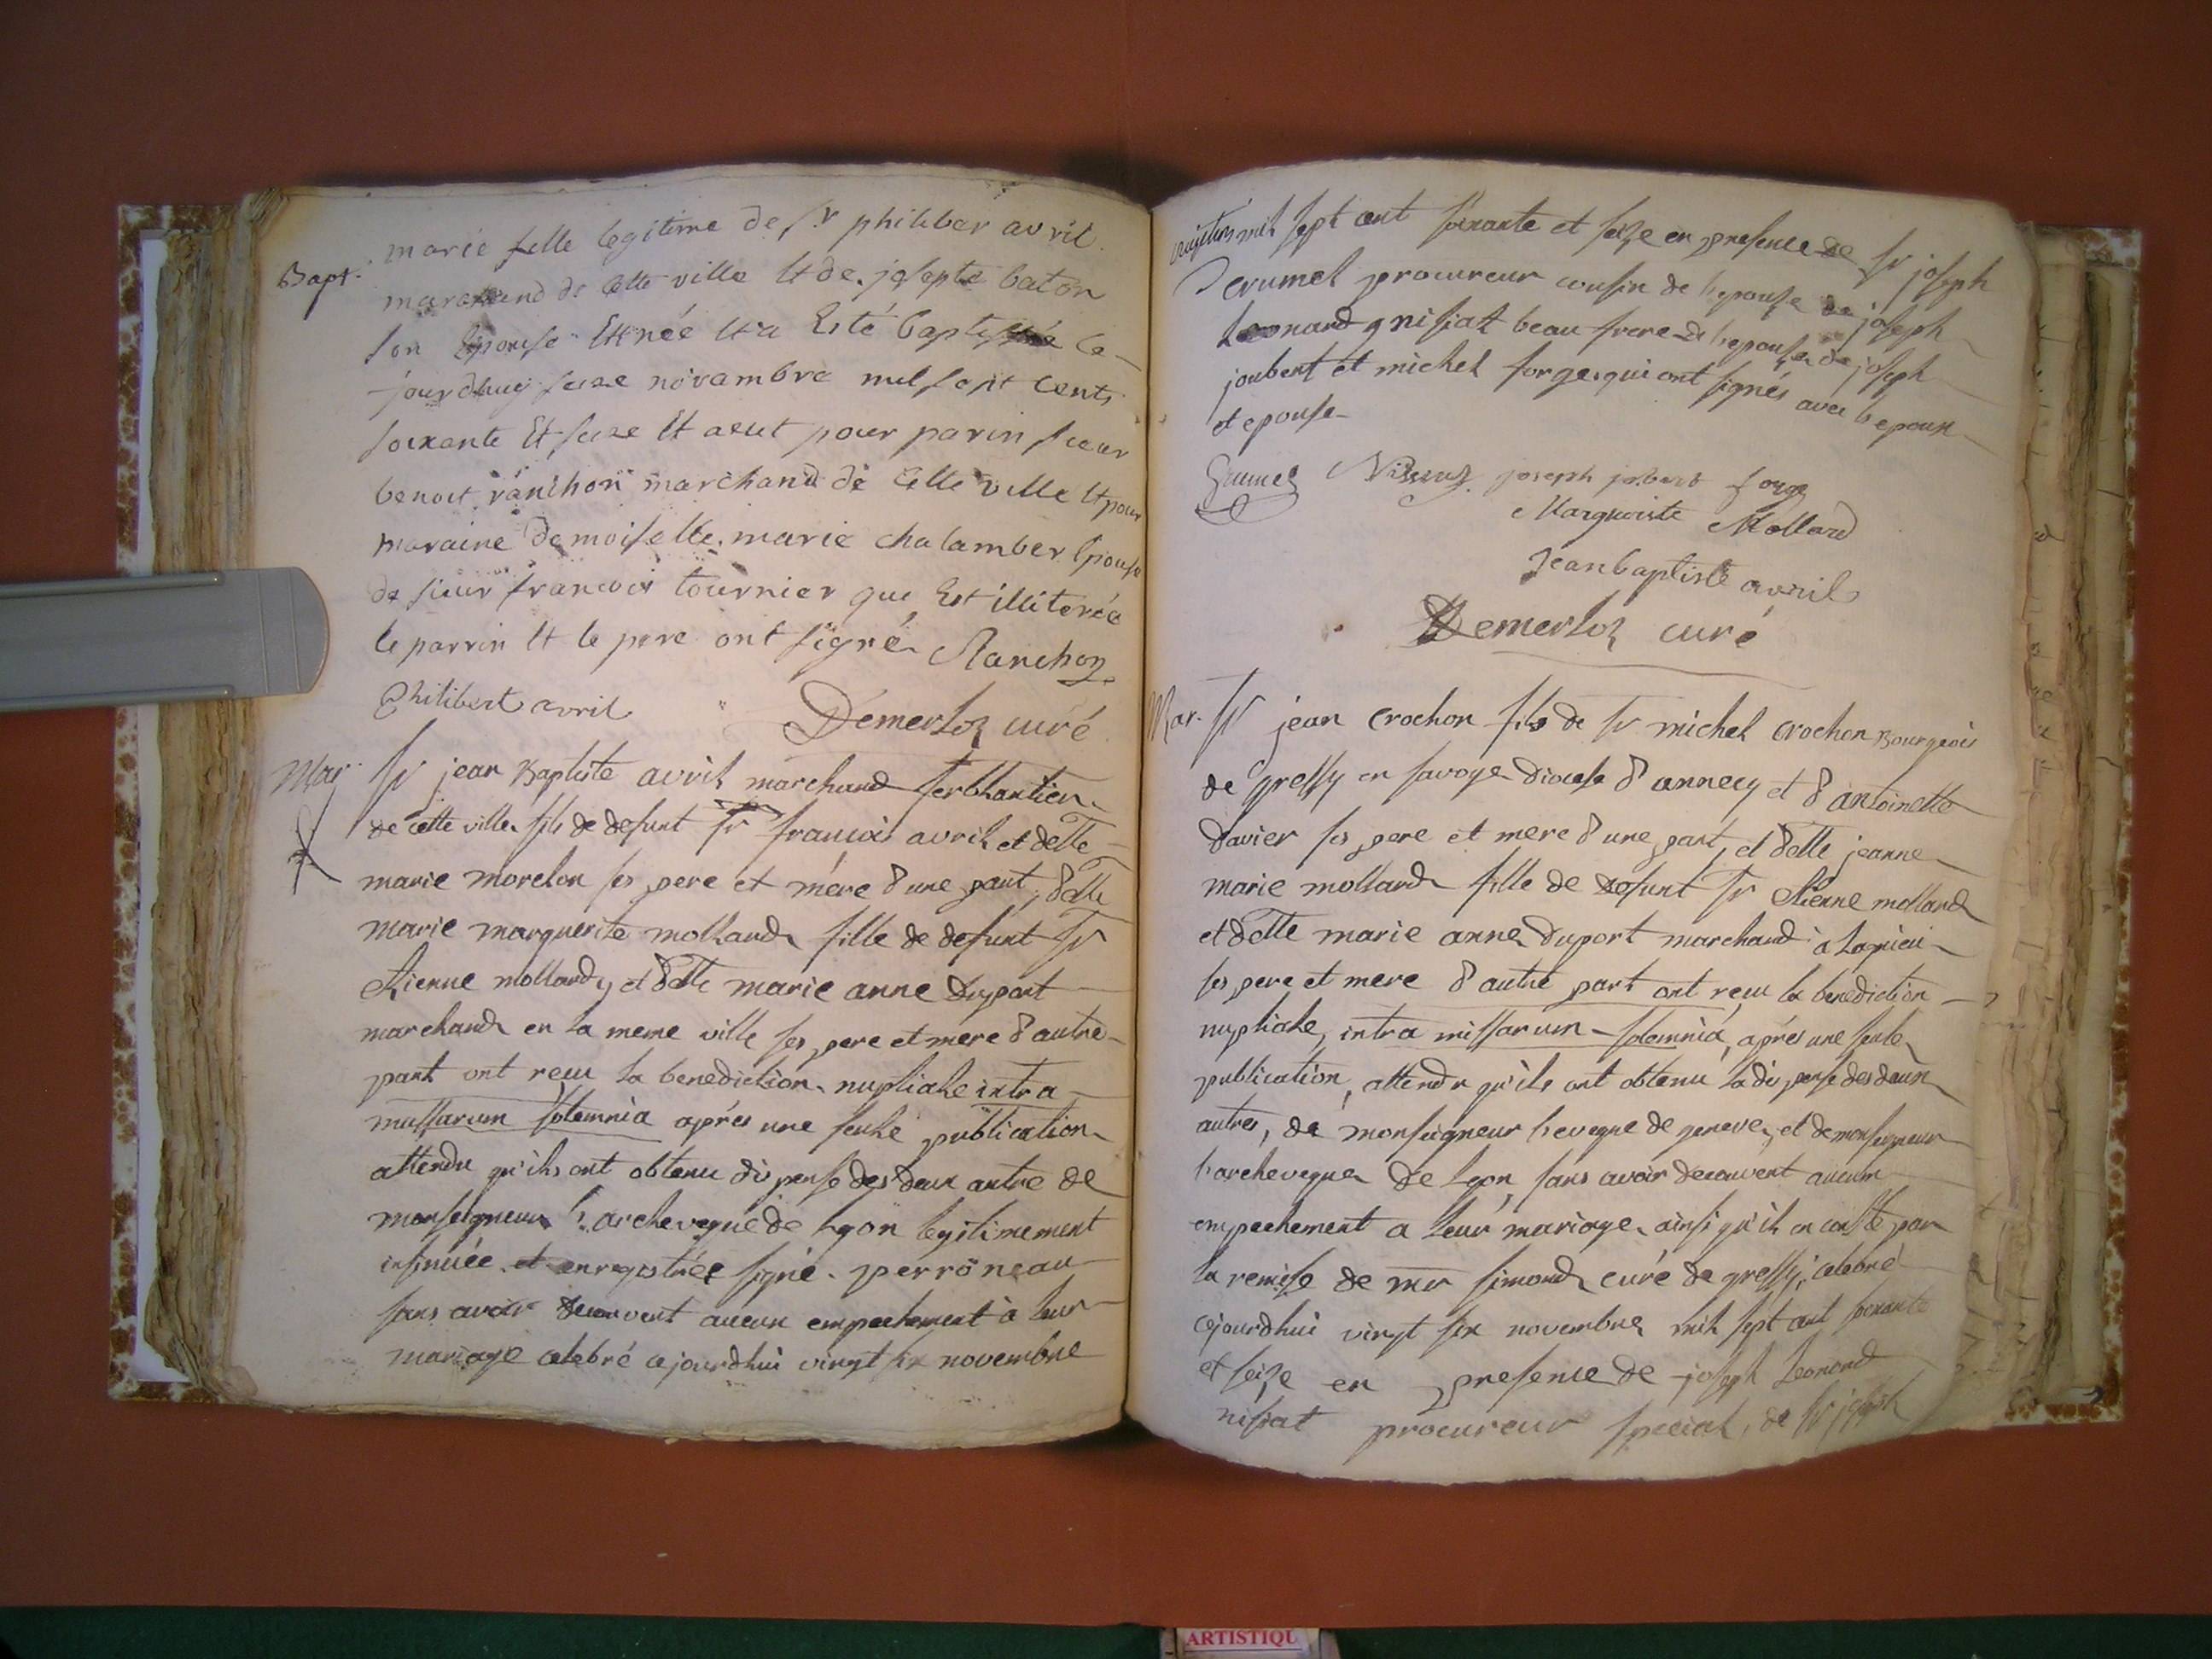 Bapt.
marie fille legitime de sr philiber avril
marchand de Cette ville Et de josepte baton
son Epouse Et née Et a Esté baptissée Ce
jourdhuy seize novambre mil sept Cents
soixante Et seize Et a eut pour parin sieur
benoit ranchon marchand de Cette ville Et pour
maraine Demoiselle marie chalamber Epouse
de sieur francois tournier que Est illiterée
le parrin Et le pere ont signé Ranchon
Philibert avril Demerloz curé
Mar
Sr jean Baptiste avril marchand ferblantier
de cette ville fils de defunt Sr francois avril et delle
marie morelon ses pere et mére d'une part, delle
marie marguerite mollard fille de defunt Sr
Etienne mollard, et delle marie anne Duport
marchand en la meme ville ses pere et mere d'autre
part ont reçu la benediction nuptiale intra
missarum solemnia aprés une seule publication
attendu qu'ils ont obtenu dispense des deux autre de
monseigneur l'archeveque de Lyon legitimement
insinuée et enregistrée signé perröneau
sans avoir decouvert aucun empechement à leur
mariage celebré cejourdhui vingt six novembre
mil sept cent soixante et seize en presence de Sr joseph
Grumel procureur cousin de l'epouse de joseph
Leonard nisiat beau frere de l'epouse de joseph
joubert et michel forge qui ont signés avec l'epoux
et epouse
Grumel joseph jobert forge
Marguerite Mollard
Jean baptiste avril
Demerloz curé
Mar. Sr jean Crochon fils de Sr michel Crochon Bourgeois
de gressy en savoye Diocese d'annecy et d'antoinette
Davier ses pere et mere d'une part, et delle jeanne
marie mollard fille de defunt Sr Etienne mollard
et delle marie anne Duport marchand à Lagnieu
ses pere et mere d'autre part ont reçu la benediction
nuptiale, intra missarum solemnia, aprés une seule
publication, attendu qu'ils ont obtenu la dispense des deux
autres, de monseigneur l'eveque de geneve, et de monseigneur
l'archeveque de Lyon, sans avoir decouvert aucun
empechement a leur mariage, ainsi qu'il en conste par
la remise de mr simond curé de gressy, celebré
cejourdhui vingt six novembre mil sept cent soixante
et seize en presence de joseph Leonard
nisiat procureur special, de Sr joseph
ARTISTIQU